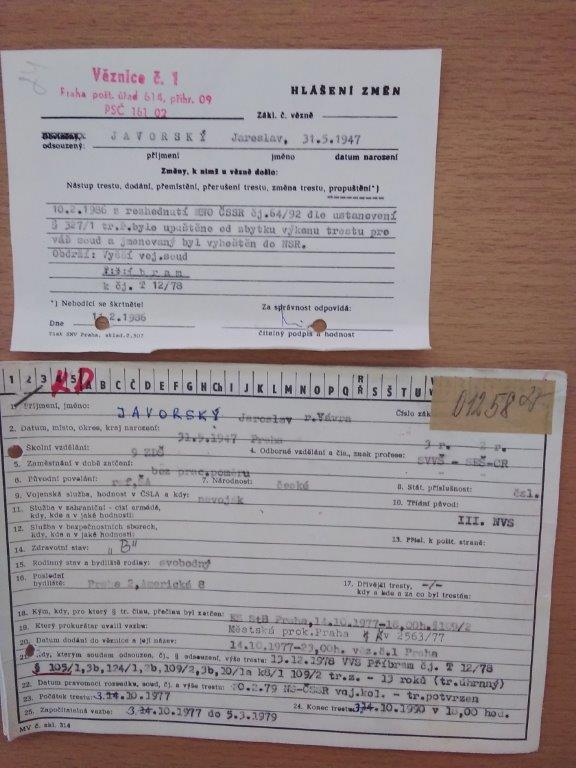 Věznice č. 1
Praha pošt. úřad 614, přihr. 09
PSČ 161 02
HLÁŠENÍ ZMĚN
Zákl. č. vězně
odsouzený: JAVORSKÝ Jaroslav, 31.5.1947
příjmení jméno datum narození
Změny, k nimž u vězně došlo:
Nástup trestu, dodání, přemístění, přerušení trestu, změna trestu, propuštění*)
10.2.1986 z rozhodnutí MNO ČSSR čj.64/92 dle ustanovení
§ 327/1 tr.ř.bylo upuštěno od zbytku výkonu trestu pro
váš soud a jmenovaný byl vyhoštěn do NSR.
Obdrží: Vyšší voj.soud
Příbram
k čj. T 12/78
*) Nehodící se škrtněte!
Za správnost odpovídá:
Dne 11.2.1986
čitelný podpis a hodnost
Tisk SNV Praha, sklad.č.307
1 2 3 4 5 A B C Č D E F G H Ch I J K L M N O P Q R Ř S Š T U
KD
01258
1. Příjmení, jméno: JAVORSKÝ Jaroslav r.Vávra Číslo zák
2. Datum, místo, okres, kraj narození: 31.9.1947 Praha
Školní vzdělání: 9 ZDŠ 4. Odborné vzdělání a čís. znak profese: 3 r. 2 r. SVVŠ - SEŠ-CR
5. Zaměstnání v době zatčení: bez prac.poměru
6. Původní povolání: ref.ČA 7. Národnosti: české 8. Stát. příslušnost: čsl.
9. Vojenská služba, hodnost v ČSLA a kdy: nevoják 10. Třídní původ:
11. Služba v zahraniční - cizí armádě, kdy, kde a v jaké hodnosti: III. NVS
12. Služba v bezpečnostních sborech, kdy, kde a v jaké hodnosti: 13. Přísl. k polit. straně:
14. Zdravotní stav: „B"
15. Rodinný stav a bydliště rodiny: svobodný
16. Poslední bydliště: Praha 2,Americká 8 17. Dřívější tresty, kdy a kde a za co byl trestán: -/-
18. Kým, kdy, pro který § tr. činu, přečinu byl zatčen: KS StB Praha,14.10.1977-16,00h.§109/2
19. Který prokurátor uvalil vazbu: Městská prok.Praha Kv 2563/77
20. Datum dodání do věznice a její název: 14.10.1977-23,00h. věz.č.1 Praha
21. Kdy, kterým soudem odsouzen, čj., § odsouzení, výše trestu: 15.12.1978 VVS Příbram čj. T 12/78
§ 105/1,3b,124/1,2b,109/2,3b,10/1a k8/1 109/2 tr.z. - 13 roků (tr.úhrnný)
22. Datum pravomoci rozsudku, soud, čj. a výše trestu: 20.2.79 NS-ČSSR voj.kol. - tr.potvrzen
23. Počátek trestu: 14.10.1977 24. Konec trestu: 14.10.1990 v 16,00 hod.
25. Započitatelná vazba: 14.10.1977 do 5.3.1979
MV č. skl. 314